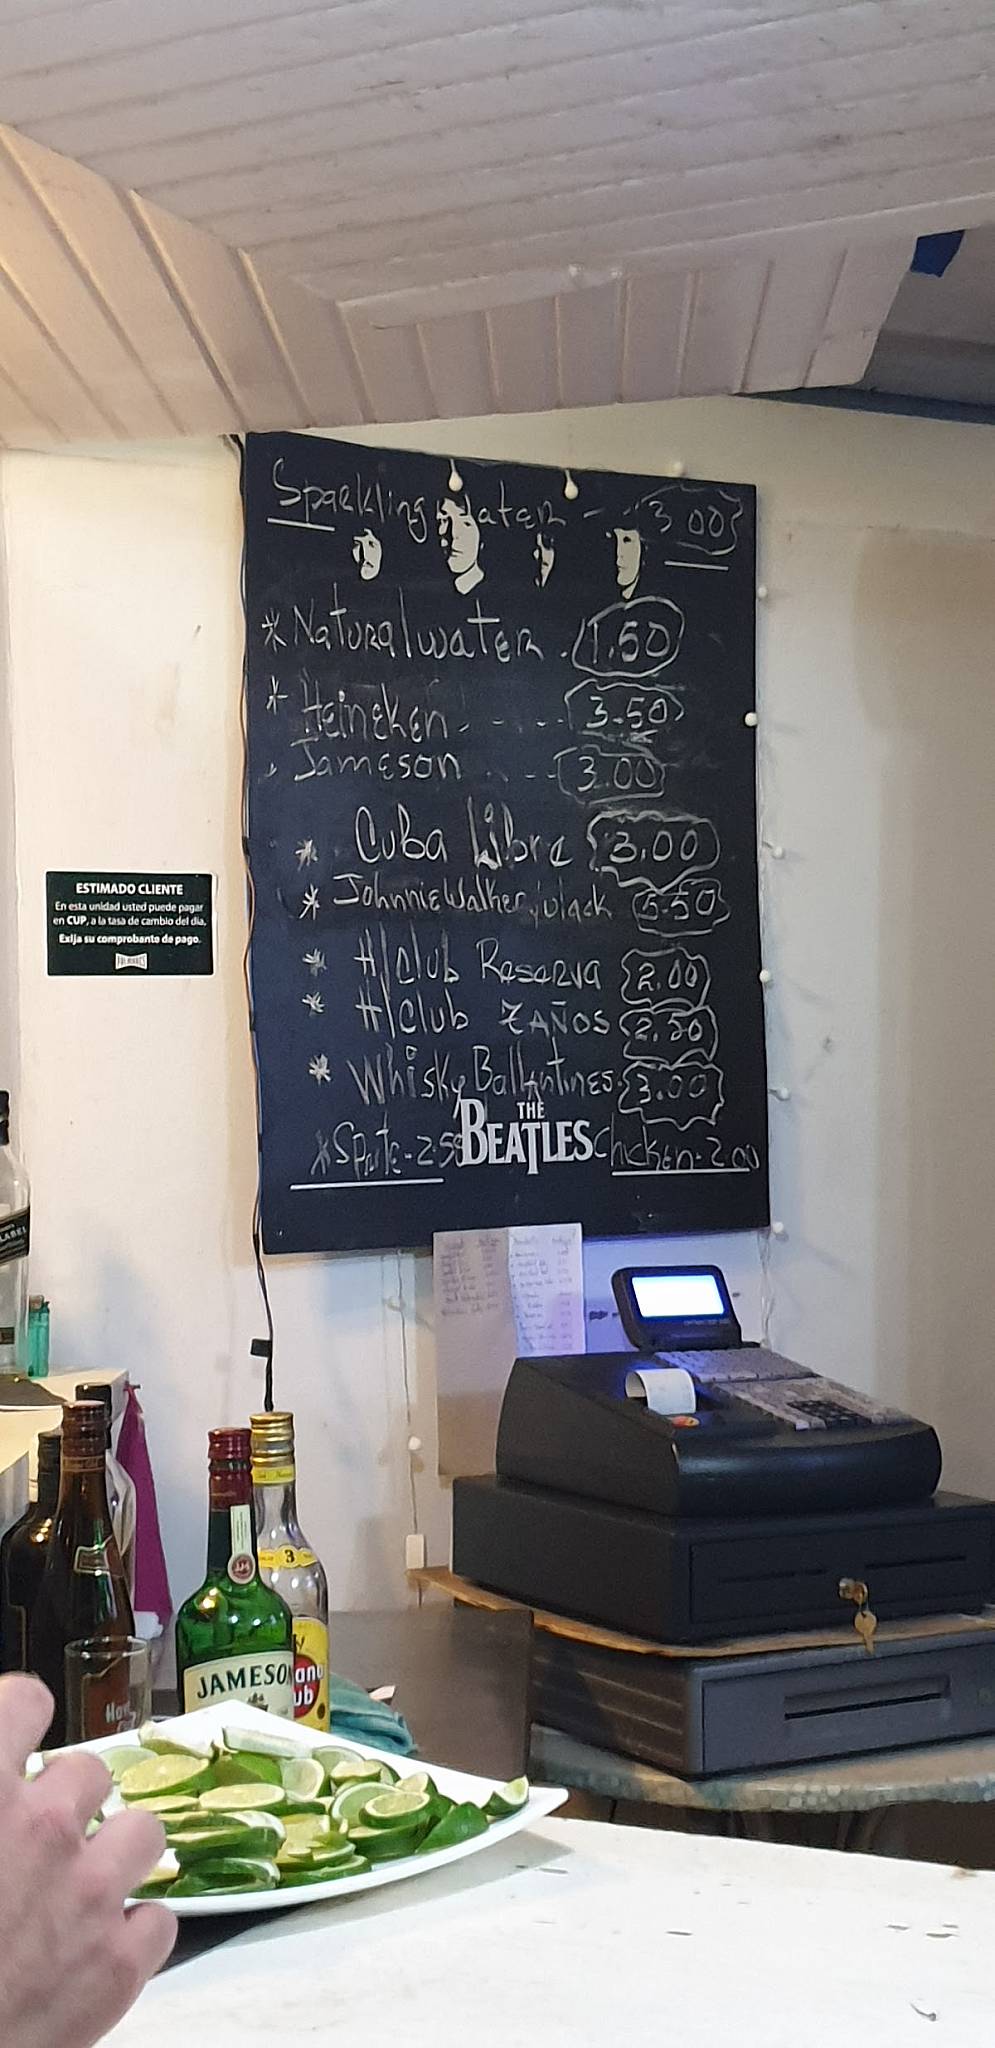 Sparkling water - - 3.00
* Natural water . 1.50
* Heineken - - - - 3.50
* Jameson - - - 3.00
* Cuba Libre 3.00
* Johnnie Walker black 5.50
* H/Club Reserva 2.00
* H/Club 7 AÑOS
* Whisky Ballantines. 3.00
THE
BEATLES
* Sprite - 2.50
Chicken - 2.00
ESTIMADO CLIENTE
En esta unidad usted puede pagar
en CUP, a la tasa de cambio del día.
Exija su comprobante de pago.
PALMARES
LABEL
3
JAMESON